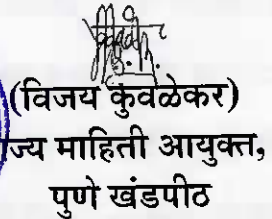 (विजय कुवळेकर)
ज्य माहिती आयुक्त,
पुणे खंडपीठ